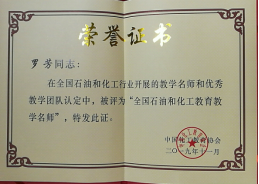 荣誉证书
罗芳同志：
在全国石油和化工行业开展的教学名师和优秀
教学团队认定中，被评为“全国石油和化工教育教
学名师”，特发此证。
中国化工教育协会
二〇一九年十一月